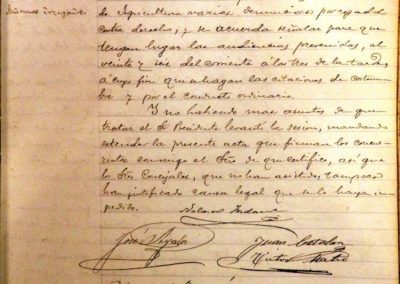 de Agricultura varias denuncias por
contra derecho, y se acuerda señalar para que
tengan lugar las audiencias prevenidas, el
veinte y seis del corriente á las tres de la tarde,
á cuyo fin que se hagan las citaciones de costum-
bre y por el conducto ordinario.
Y no habiendo mas asuntos de que
tratar el Sr Presidente levantó la sesion, mandando
estender la presente acta que firman los concu-
rrentes conmigo el Srio de que certifico, así que
los Sres Concejales, que no han asistido, tampoco
han justificado causa legal que se lo haya im-
pedido.
José
Juan Catalan